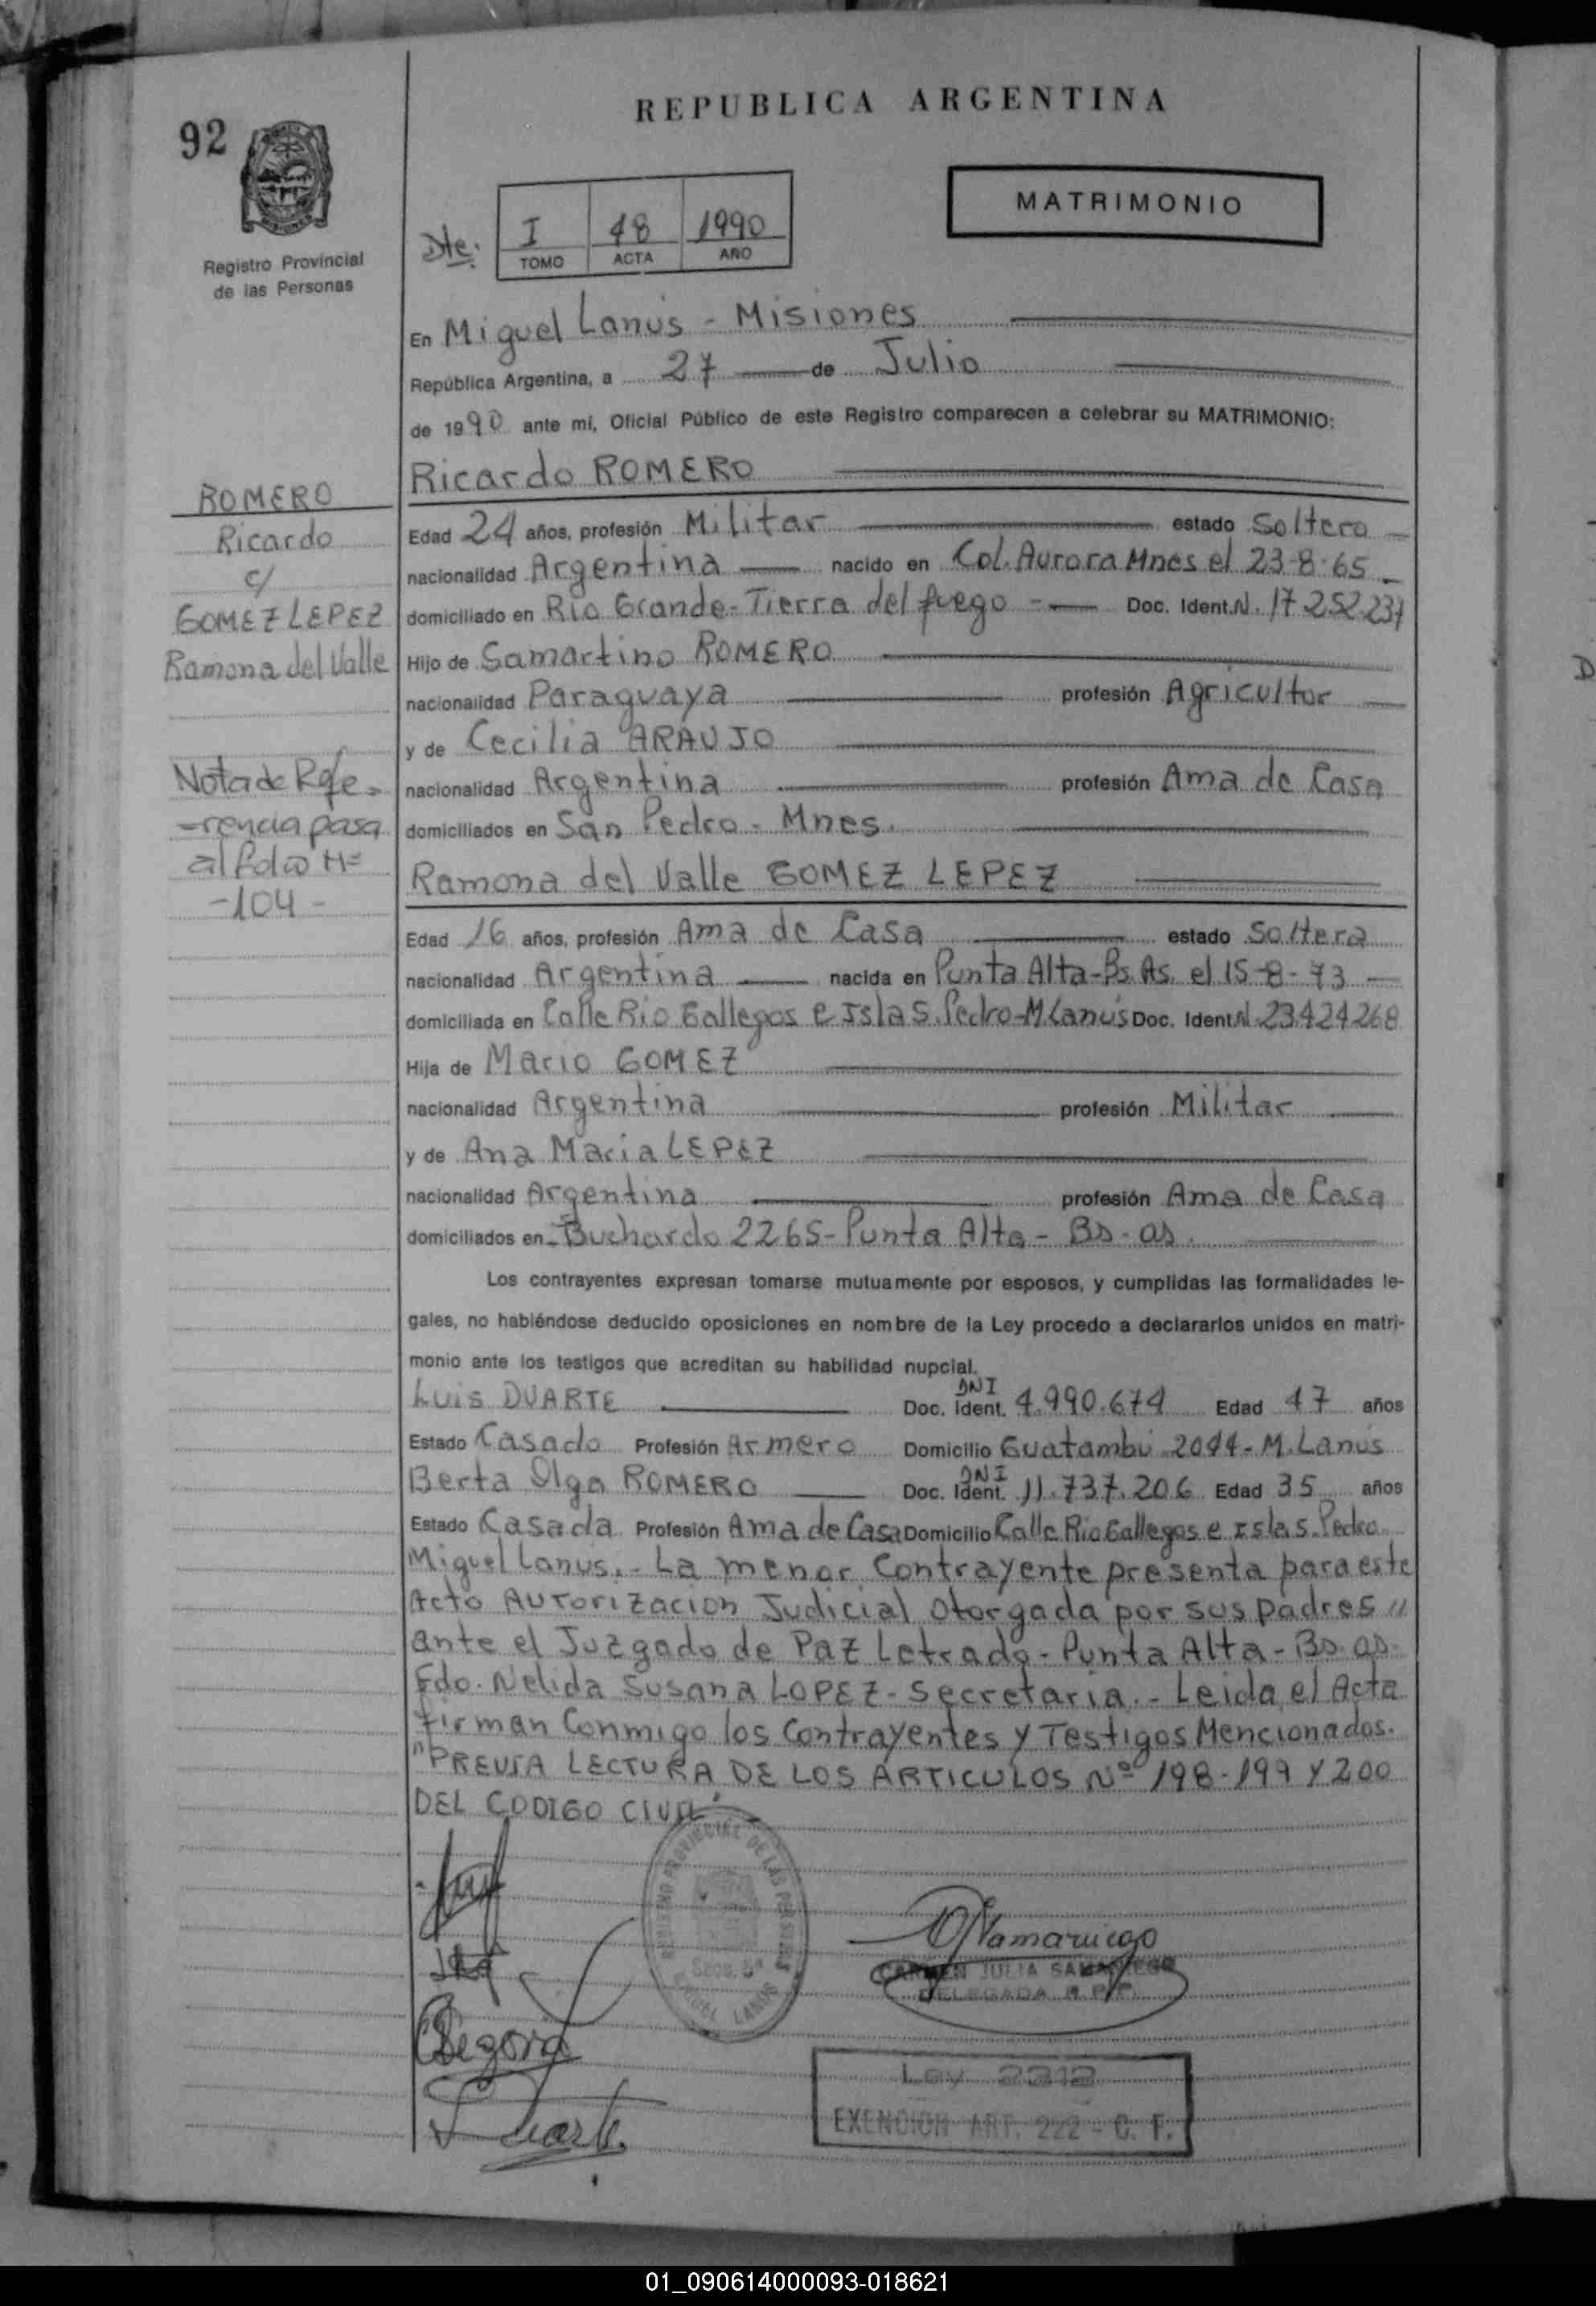 REPUBLICA ARGENTINA
92
MATRIMONIO
Dte: I 48 1990
TOMO ACTA AÑO
Registro Provincial
de las Personas
En Miguel Lanús - Misiones
República Argentina, a 27 de Julio
de 1990 ante mí, Oficial Público de este Registro comparecen a celebrar su MATRIMONIO:
Ricardo ROMERO
ROMERO
Ricardo
c/
GOMEZ LEPEZ
Ramona del Valle
Edad 24 años, profesión Militar estado Soltero
nacionalidad Argentina nacido en Col. Aurora Mnes el 23-8-65
domiciliado en Río Grande - Tierra del fuego - Doc. Ident. N. 17.252.237
Hijo de Samartino ROMERO
nacionalidad Paraguaya profesión Agricultor
y de Cecilia ARAUJO
nacionalidad Argentina profesión Ama de Casa
domiciliados en San Pedro - Mnes.
Nota de Refe-
-rencia pasa
al folio Nº
-104-
Ramona del Valle GOMEZ LEPEZ
Edad 16 años, profesión Ama de Casa estado Soltera
nacionalidad Argentina nacida en Punta Alta-Bs. As. el 15-8-73
domiciliada en Calle Río Gallegos e Isla S. Pedro-M Lanús Doc. Ident. N. 23.424.268
Hija de Mario GOMEZ
nacionalidad Argentina profesión Militar
y de Ana Maria LEPEZ
nacionalidad Argentina profesión Ama de Casa
domiciliados en Buchardo 2265 - Punta Alta - Bs. as.
Los contrayentes expresan tomarse mutuamente por esposos, y cumplidas las formalidades le-
gales, no habiéndose deducido oposiciones en nombre de la Ley procedo a declararlos unidos en matri-
monio ante los testigos que acreditan su habilidad nupcial.
Luis DUARTE Doc. Ident. DNI 4.990.674 Edad 47 años
Estado Casado Profesión Armero Domicilio Guatambú 2044 - M. Lanús
Berta Olga ROMERO Doc. Ident. DNI 11.737.206 Edad 35 años
Estado Casada Profesión Ama de Casa Domicilio Calle Rio Gallegos e Isla S. Pedro
Miguel Lanus.- La menor Contrayente presenta para este
Acto AUTorización Judicial otorgada por sus padres //
ante el Juzgado de Paz Letrado - Punta Alta - Bs. as.
Fdo. Nelida Susana LOPEZ - Secretaria.- Leida el Acta
firman Conmigo los Contrayentes y Testigos Mencionados.
"PREVIA LECTURA DE LOS ARTICULOS Nº 198-199 y 200
DEL CODIGO CIVIL"
REGISTRO PROVINCIAL DE LAS PERSONAS
MIGUEL LANUS
CARMEN JULIA SAMANIEGO
DELEGADA R.P.P.
Duarte
Ley 2312
EXENCION ART. 222 - C. F.
01_090614000093-018621